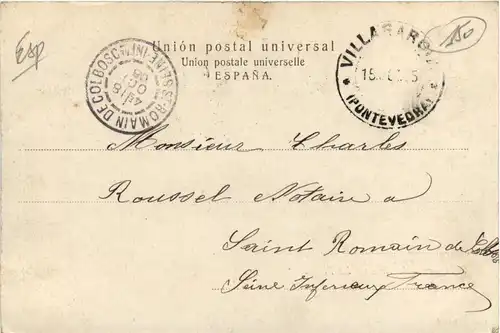 Esp
150
Unión postal universal
Union postale universelle
ESPAÑA.
ST ROMAIN DE COLBOSC
SEINE INF.
18
OCT
05
VILLAGARCIA
(PONTEVEDRA)
Monsieur Charles
Roussel Notaire a
Saint Romain de Colbosc
Seine Inferieure France